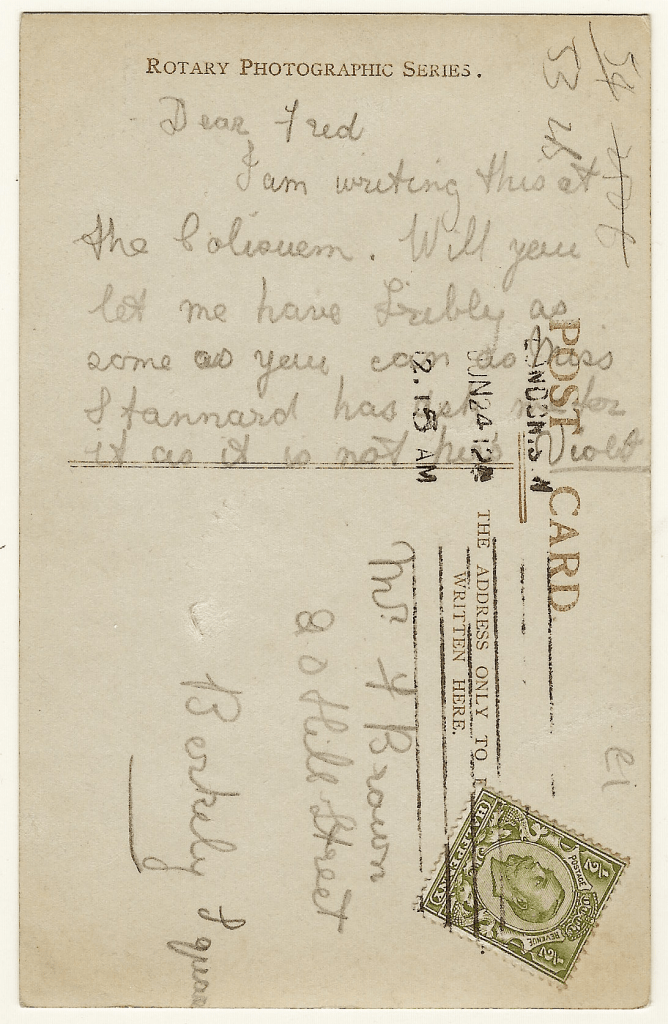 ROTARY PHOTOGRAPHIC SERIES.
Dear Fred
I am writing this at
the Colisuem. Will you
let me have as
some as you can as Miss
Stannard has me for
it as it is not hers Violet
POST CARD
THE ADDRESS ONLY TO
WRITTEN HERE.
LONDON. S.W
JUN 24 12
2.15 AM
Mr F Brown
20 Hill Street
Berkely Squar
POSTAGE
REVENUE
1/2
1/2
54
53